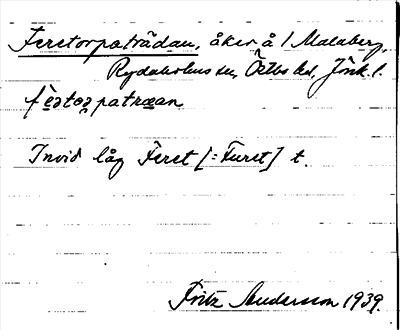 Feretorpaträdan, åker å / Malaberg,
Rydaholms sn, Östbo hd, Jönk. l.
fèrtorpatræan
Invid låg Feret [: Furet] t.
Fritz Andersson 1939.